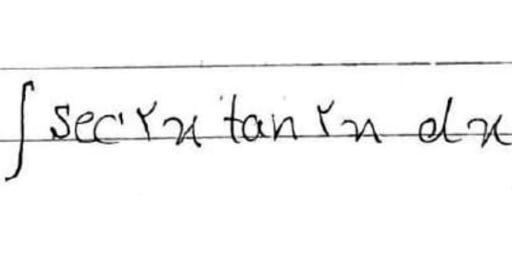 ∫ sec ۲x tan ۲x dx